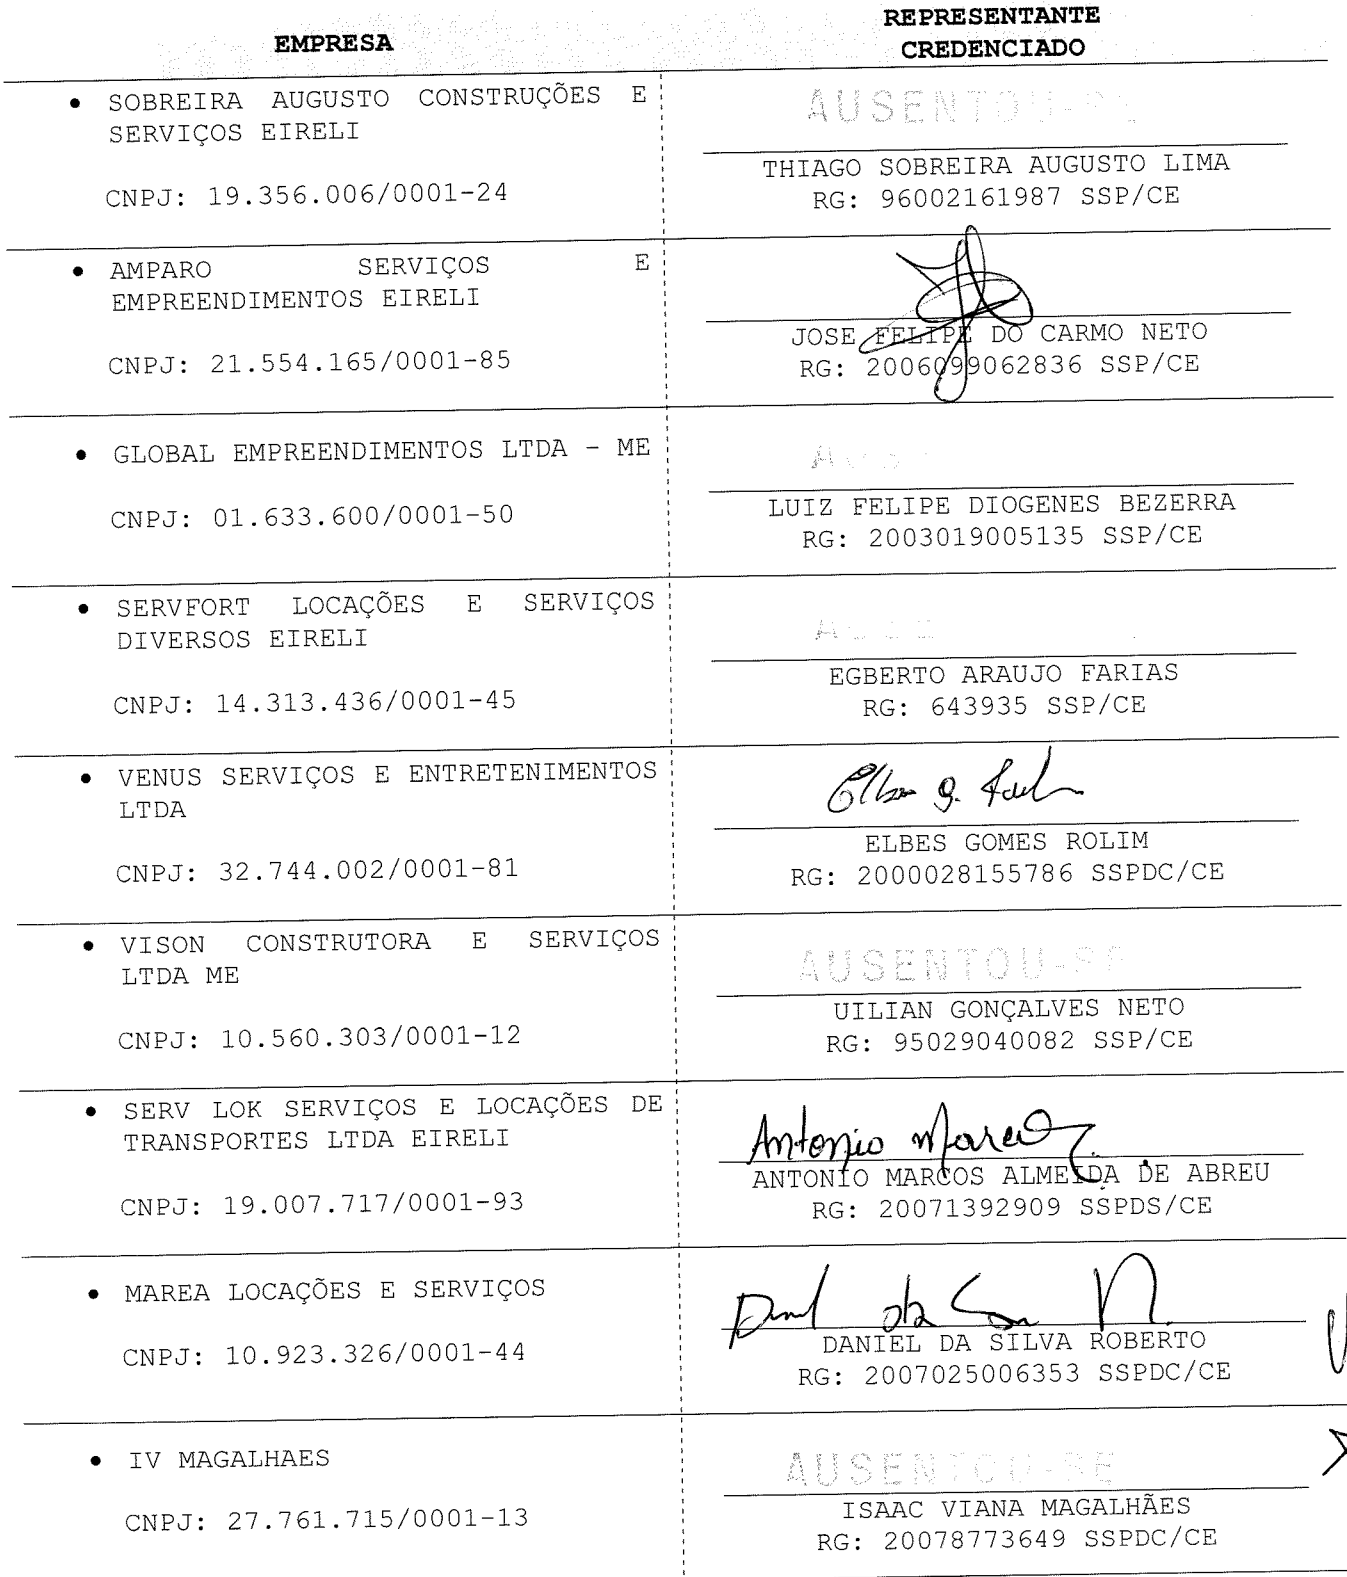 EMPRESA
REPRESENTANTE
CREDENCIADO
• SOBREIRA AUGUSTO CONSTRUÇÕES E
SERVIÇOS EIRELI
CNPJ: 19.356.006/0001-24
AUSENTOU-SE
THIAGO SOBREIRA AUGUSTO LIMA
RG: 96002161987 SSP/CE
• AMPARO SERVIÇOS E
EMPREENDIMENTOS EIRELI
CNPJ: 21.554.165/0001-85
JOSE FELIPE DO CARMO NETO
RG: 2006099062836 SSP/CE
• GLOBAL EMPREENDIMENTOS LTDA - ME
CNPJ: 01.633.600/0001-50
LUIZ FELIPE DIOGENES BEZERRA
RG: 2003019005135 SSP/CE
• SERVFORT LOCAÇÕES E SERVIÇOS
DIVERSOS EIRELI
CNPJ: 14.313.436/0001-45
EGBERTO ARAUJO FARIAS
RG: 643935 SSP/CE
• VENUS SERVIÇOS E ENTRETENIMENTOS
LTDA
CNPJ: 32.744.002/0001-81
ELBES GOMES ROLIM
RG: 2000028155786 SSPDC/CE
• VISON CONSTRUTORA E SERVIÇOS
LTDA ME
CNPJ: 10.560.303/0001-12
AUSENTOU-SE
UILIAN GONÇALVES NETO
RG: 95029040082 SSP/CE
• SERV LOK SERVIÇOS E LOCAÇÕES DE
TRANSPORTES LTDA EIRELI
CNPJ: 19.007.717/0001-93
Antonio Marcos
ANTONIO MARCOS ALMEIDA DE ABREU
RG: 20071392909 SSPDS/CE
• MAREA LOCAÇÕES E SERVIÇOS
CNPJ: 10.923.326/0001-44
DANIEL DA SILVA ROBERTO
RG: 2007025006353 SSPDC/CE
• IV MAGALHAES
CNPJ: 27.761.715/0001-13
AUSENTOU-SE
ISAAC VIANA MAGALHÃES
RG: 20078773649 SSPDC/CE